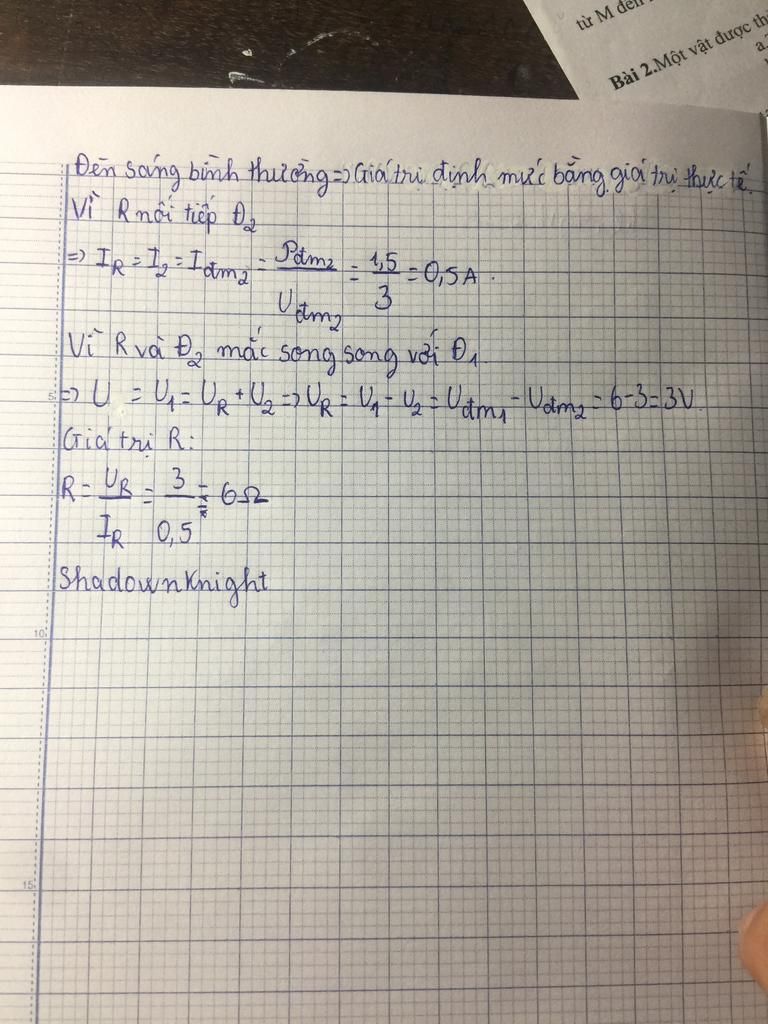 từ M đến
Bài 2.Một vật được th
a.
Đèn sáng bình thường => Giá trị định mức bằng giá trị thực tế.
Vì R nối tiếp Đ₂
=> I_R = I₂ = I_đm₂ = P_đm₂ / U_đm₂ = 1,5 / 3 = 0,5A.
Vì R và Đ₂ mắc song song với Đ₁.
5 => U = U₁ = U_R + U₂ => U_R = U₁ - U₂ = U_đm₁ - U_đm₂ = 6-3=3V
Giá trị R:
R = U_R / I_R = 3 / 0,5 = 6Ω
ShadownKnight
10
15